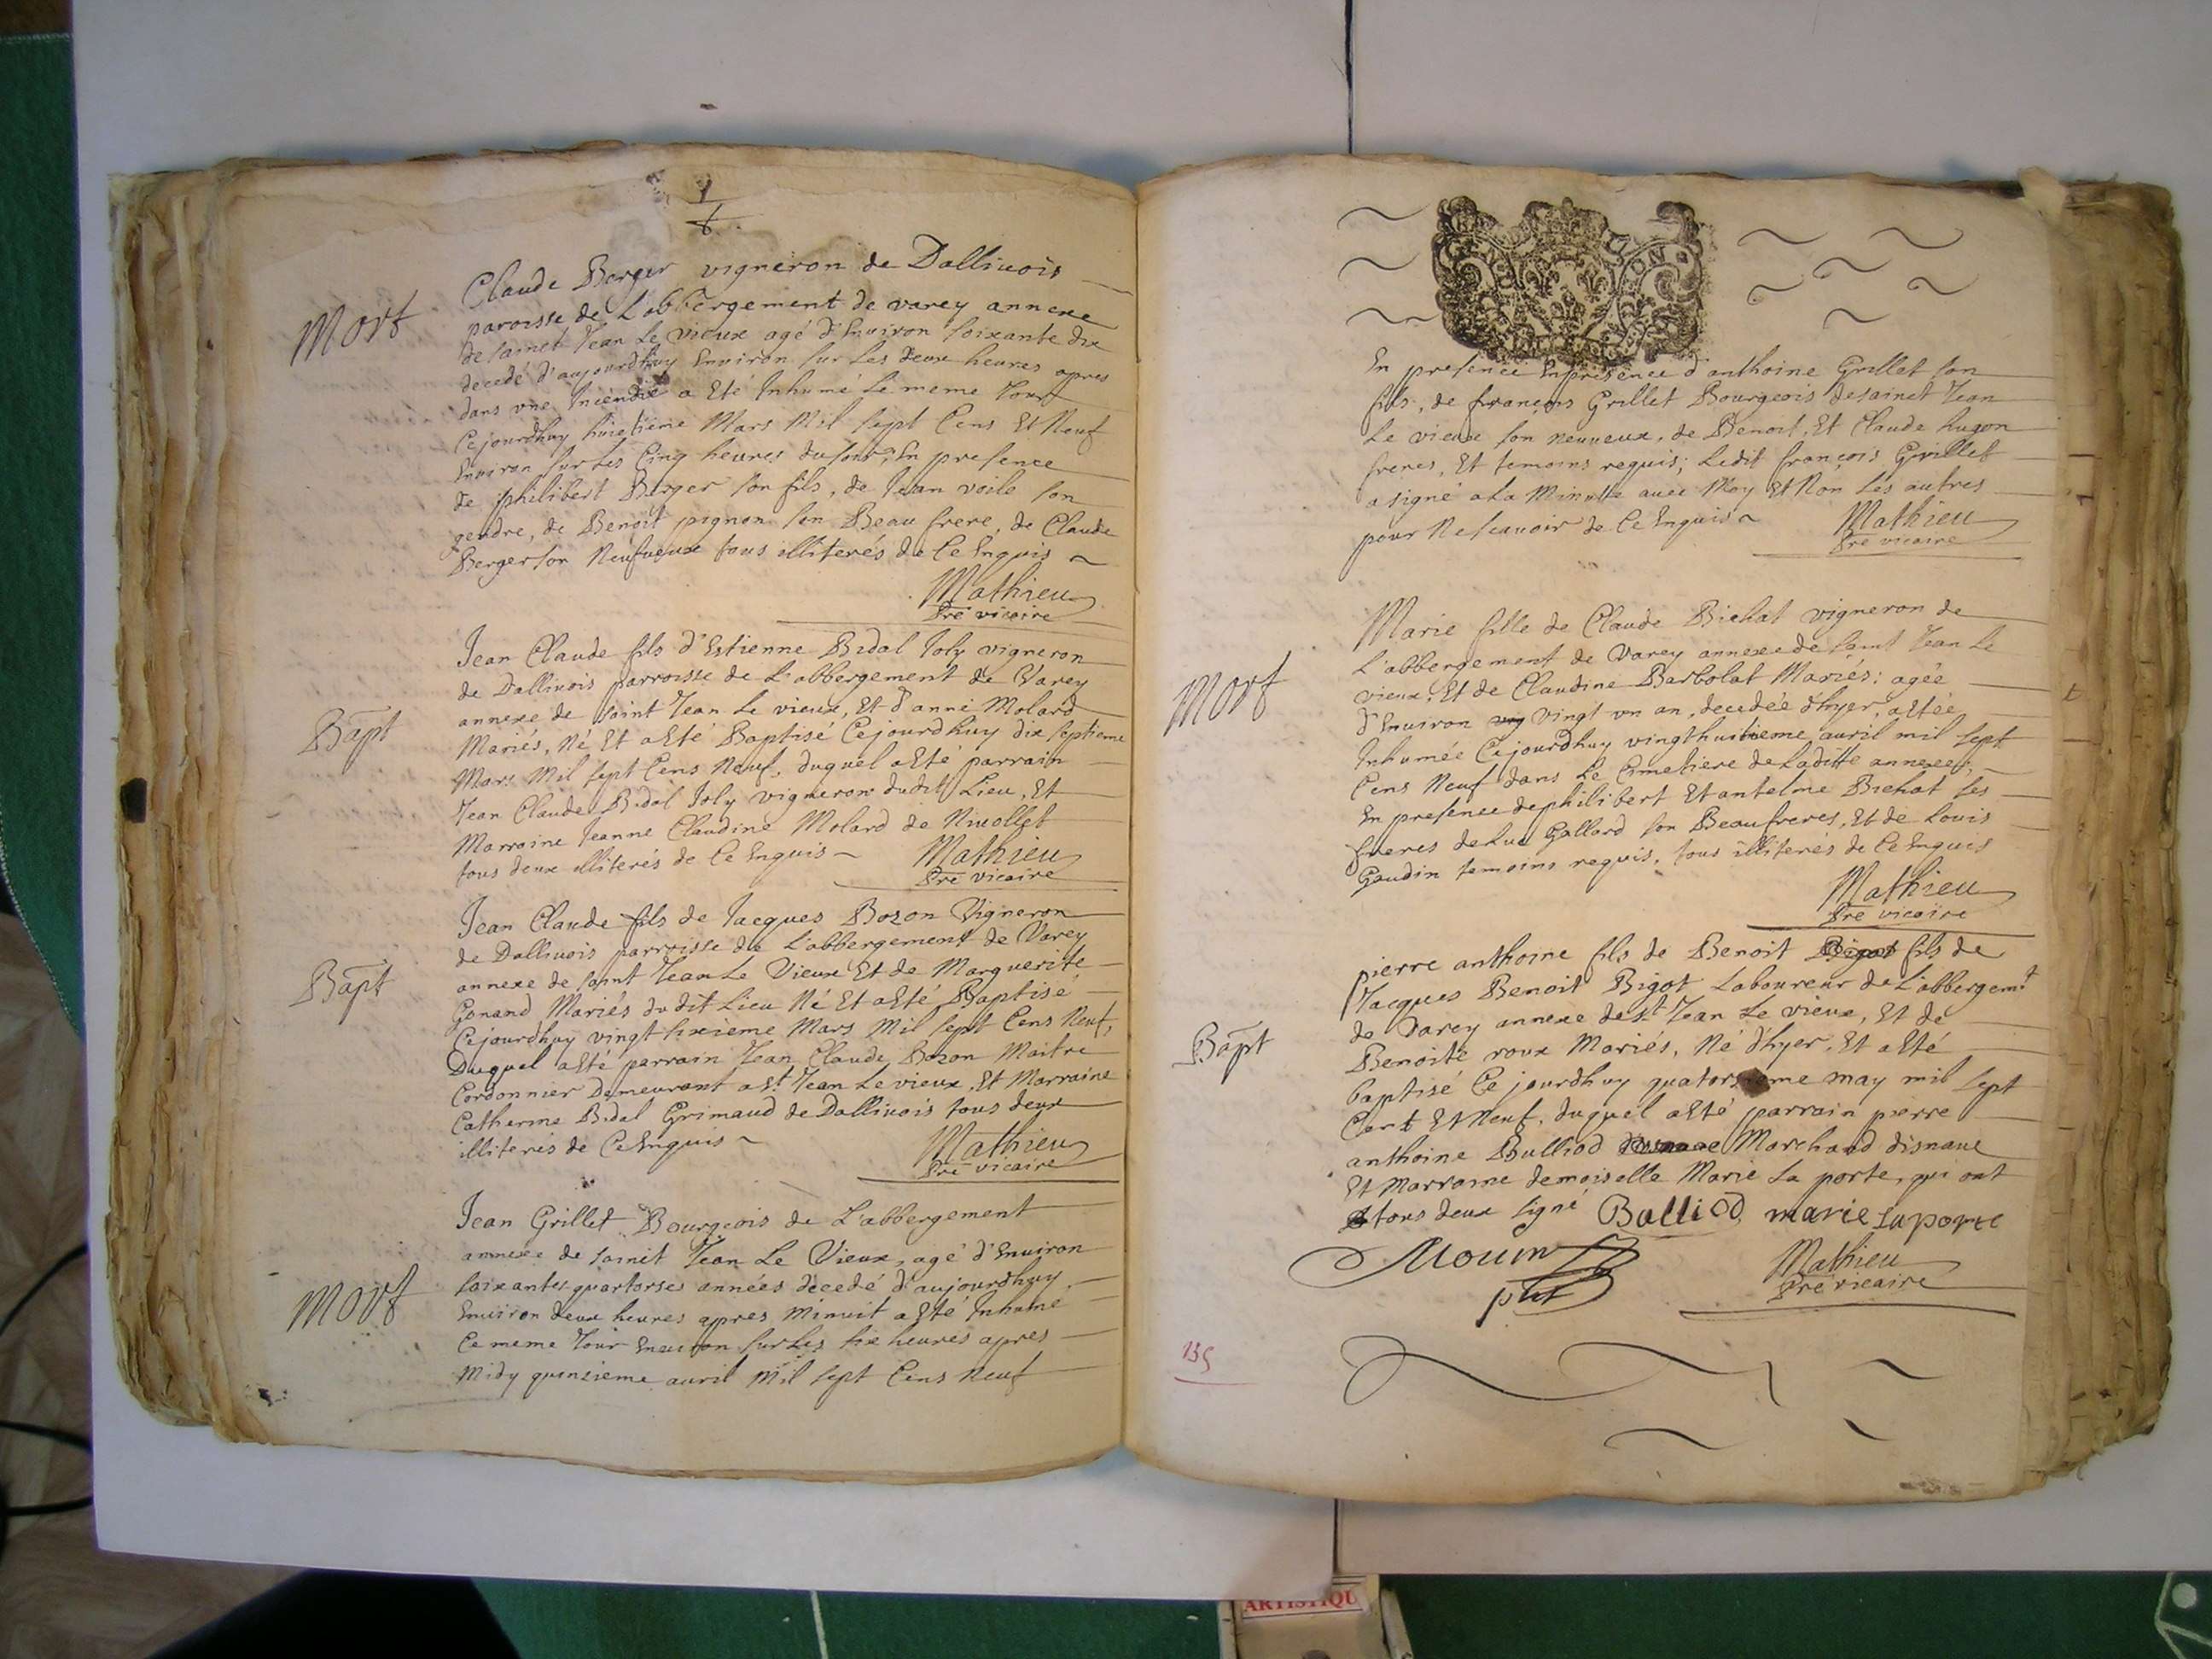 Mort
Claude Berger vigneron de Dallivois
paroisse de L'abbergement de varey annexe
de sainct Jean Le vieux agé d'Environ soixante dix
decedé d'aujourdhuy Environ sur Les deux heures apres
dans une Incendie a Eté Inhumé le meme Jour
Cejourdhuy huictieme Mars Mil sept Cens Et Neuf
Environ sur Les Cinq heures du soir, En presence
de philibert Berger son fils, de Jean voile son
gendre, de Benoit pignon son Beau frere, de Claude
Berger son Neufueux tous illiterés de Ce Enquis
Mathieu
Pre vicaire
Bapt
Jean Claude fils d'Estienne Bidal Joly vigneron
de Dallivois parroisse de L'abbergement de Varey
annexe de saint Jean Le vieux, Et d'anne Molard
Mariés, Né Et a Eté Baptisé Cejourdhuy dix septieme
Mars Mil sept Cens Neuf, duquel a Eté parrain
Jean Claude Bidal Joly vigneron dudit Lieu, Et
Marraine Jeanne Claudine Molard de Nivollet
tous deux illiterés de Ce Enquis Mathieu
Pre vicaire
Bapt
Jean Claude fils de Jacques Bozon Vigneron
de Dallivois parroisse de L'abbergement de Varey
annexe de saint Jean Le Vieux Et de Marguerite
Gonand Mariés dudit Lieu Né Et a Eté Baptisé
Cejourdhuy vingt sixieme Mars Mil sept Cens Neuf,
Duquel a Eté parrain Jean Claude Bozon Maitre
Cordonnier Demeurant a St Jean Le vieux, Et Marraine
Catherine Bidal Grimaud de Dallivois tous deux
illiterés de Ce Enquis Mathieu
Pre vicaire
Mort
Jean Grillet Bourgeois de L'abbergement
annexe de sainct Jean Le Vieux, agé d'Environ
soixante quartorse années decedé d'aujourdhuy
Environ deux heures apres Minuit a Eté Inhumé
Ce meme Jour Environ sur Les six heures apres
Midy quinsieme avril Mil sept Cens Neuf
En presence En presence d'anthoine Grillet son
fils, de françois Grillet Bourgeois de sainct Jean
Le vieux son neuveux, de Benoit, Et Claude hugon
freres, Et temoins requis; Ledit françois Grillet
a signé a La Minutte avec Moy Et Non Les autres
pour Ne scavoir de Ce Enquis Mathieu
Pre vicaire
Mort
Marie fille de Claude Bichat vigneron de
L'abbergement de Varey annexe de saint Jean Le
vieux, Et de Claudine Barbolat Mariés; agée
d'Environ vingt un an, decedée d'hyer, a Etée
Inhumée Cejourdhuy vingthuitieme avril mil sept
Cens Neuf dans Le Cimetiere de Laditte annexe,
En presence de philibert Et antelme Bichat ses
freres de Luc Gallard son Beaufreres, Et de Louis
Gaudin temoins requis, tous illiterés de Ce Enquis
Mathieu
Pre vicaire
Bapt
pierre anthoine fils de Benoit Bigot fils de
Jacques Benoit Bigot Laboureur de L'abbergemt
de Varey annexe de St Jean Le vieux, Et de
Benoite roux Mariés, Né d'hyer, Et a Eté
baptisé Ce jourdhuy quatorsieme may mil sept
Cent Et Neuf, duquel a Eté parrain pierre
anthoine Bulliod Marchand disnaue
Et Marraine demoiselle Marie La porte, qui ont
tous deux signé Bulliod marie Laporte
Mathieu
Pre vicaire
135
ARTISTIQU